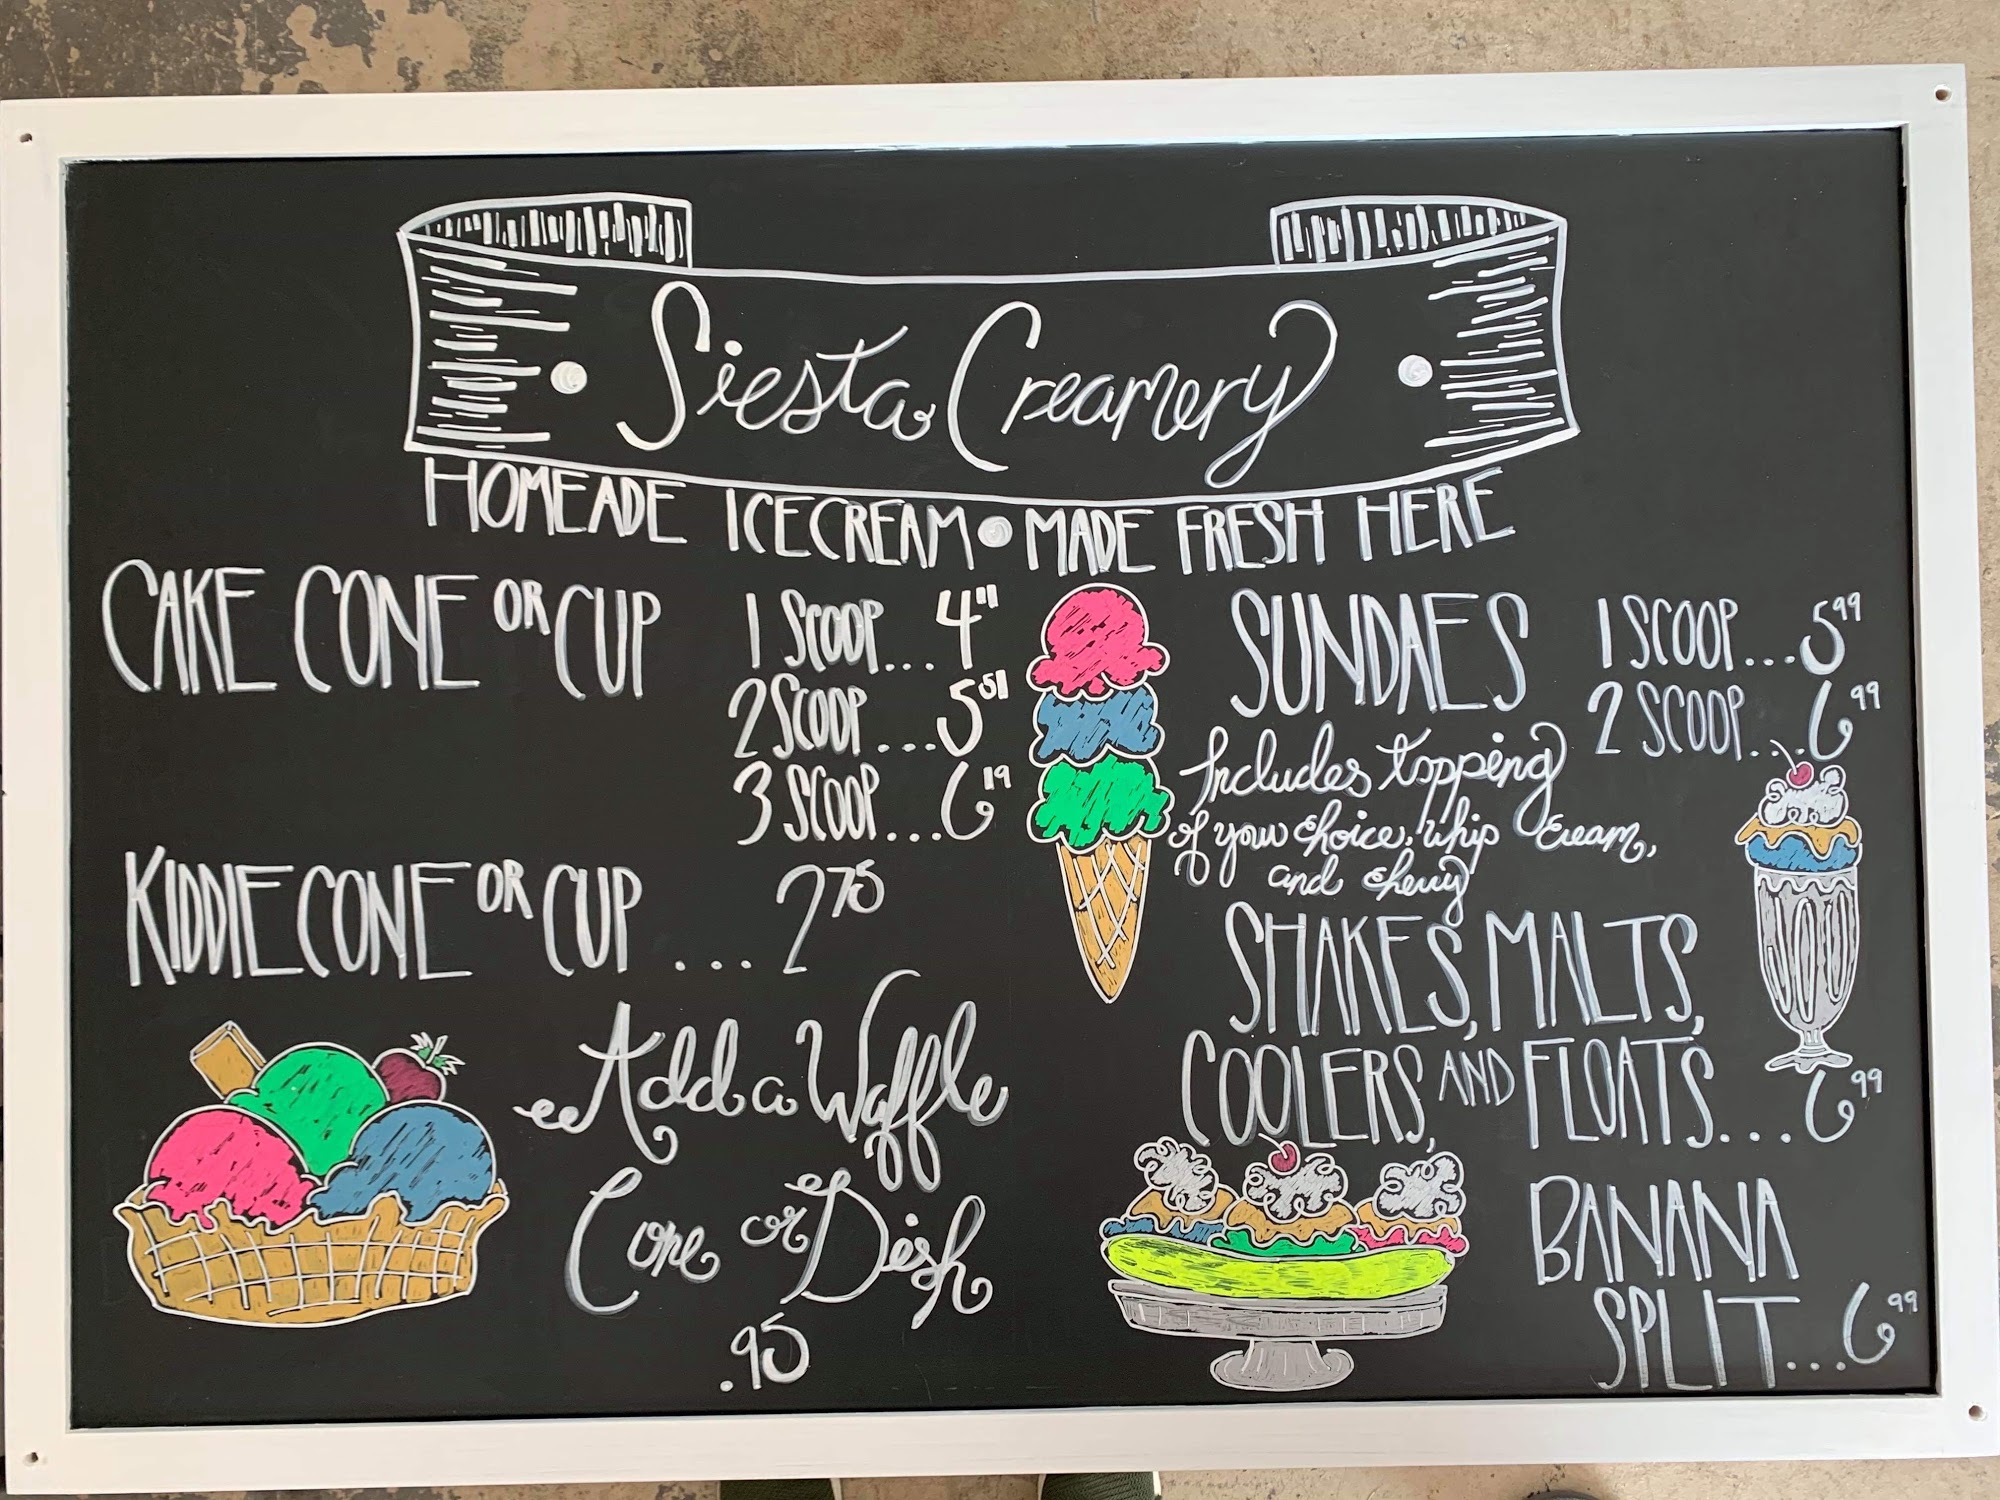 Siesta Creamery
HOMEADE ICECREAM • MADE FRESH HERE
CAKE CONE OR CUP
1 SCOOP... 4"
2 SCOOP... 5⁵¹
3 SCOOP... 6¹⁹
KIDDIE CONE OR CUP ... 2⁷⁵
Add a Waffle
Cone or Dish
.95
SUNDAES
1 SCOOP... 5⁹⁹
2 SCOOP... 6⁹⁹
Includes topping
of your choice, whip cream,
and cherry
SHAKES, MALTS,
COOLERS, AND FLOATS... 6⁹⁹
BANANA
SPLIT... 6⁹⁹